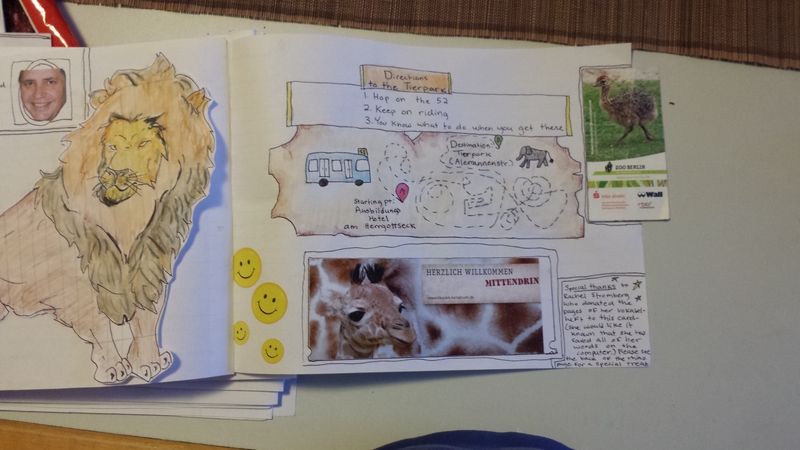 Directions
to the Tierpark
1. Hop on the 52
2. Keep on riding
3. You know what to do when you get there
52
Destination:
Tierpark
(Alemannenstr.)
Starting pt:
Ausbildungs
Hotel
am Herrgottseck
HERZLICH WILLKOMMEN
MITTENDRIN
ZOO BERLIN
Wall
Special thanks to
Rachel Stromberg
who donated the
pages of her Vokabel-
heft to this card
(she would like it
known that she has
saved all of her
words on the
computer.) Please see
the back of the
page for a special treat